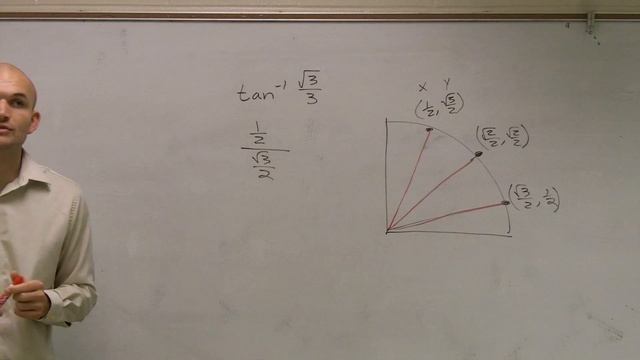 tan⁻¹ √3/3
1/2
√3/2
X Y
(1/2, √3/2)
(√2/2, √2/2)
(√3/2, 1/2)